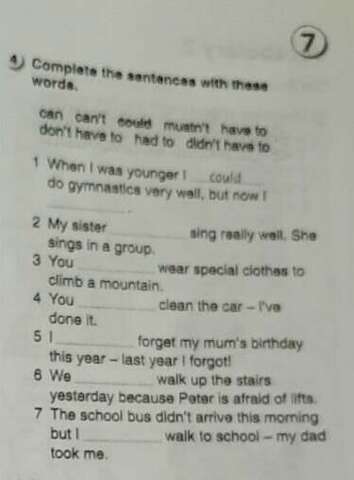 7
4 Complete the sentences with these
words.
can can't could mustn't have to
don't have to had to didn't have to
1 When I was younger I could
do gymnastics very well, but now I
.
2 My sister sing really well. She
sings in a group.
3 You wear special clothes to
climb a mountain.
4 You clean the car – I've
done it.
5 I forget my mum's birthday
this year – last year I forgot!
6 We walk up the stairs
yesterday because Peter is afraid of lifts.
7 The school bus didn't arrive this morning
but I walk to school – my dad
took me.